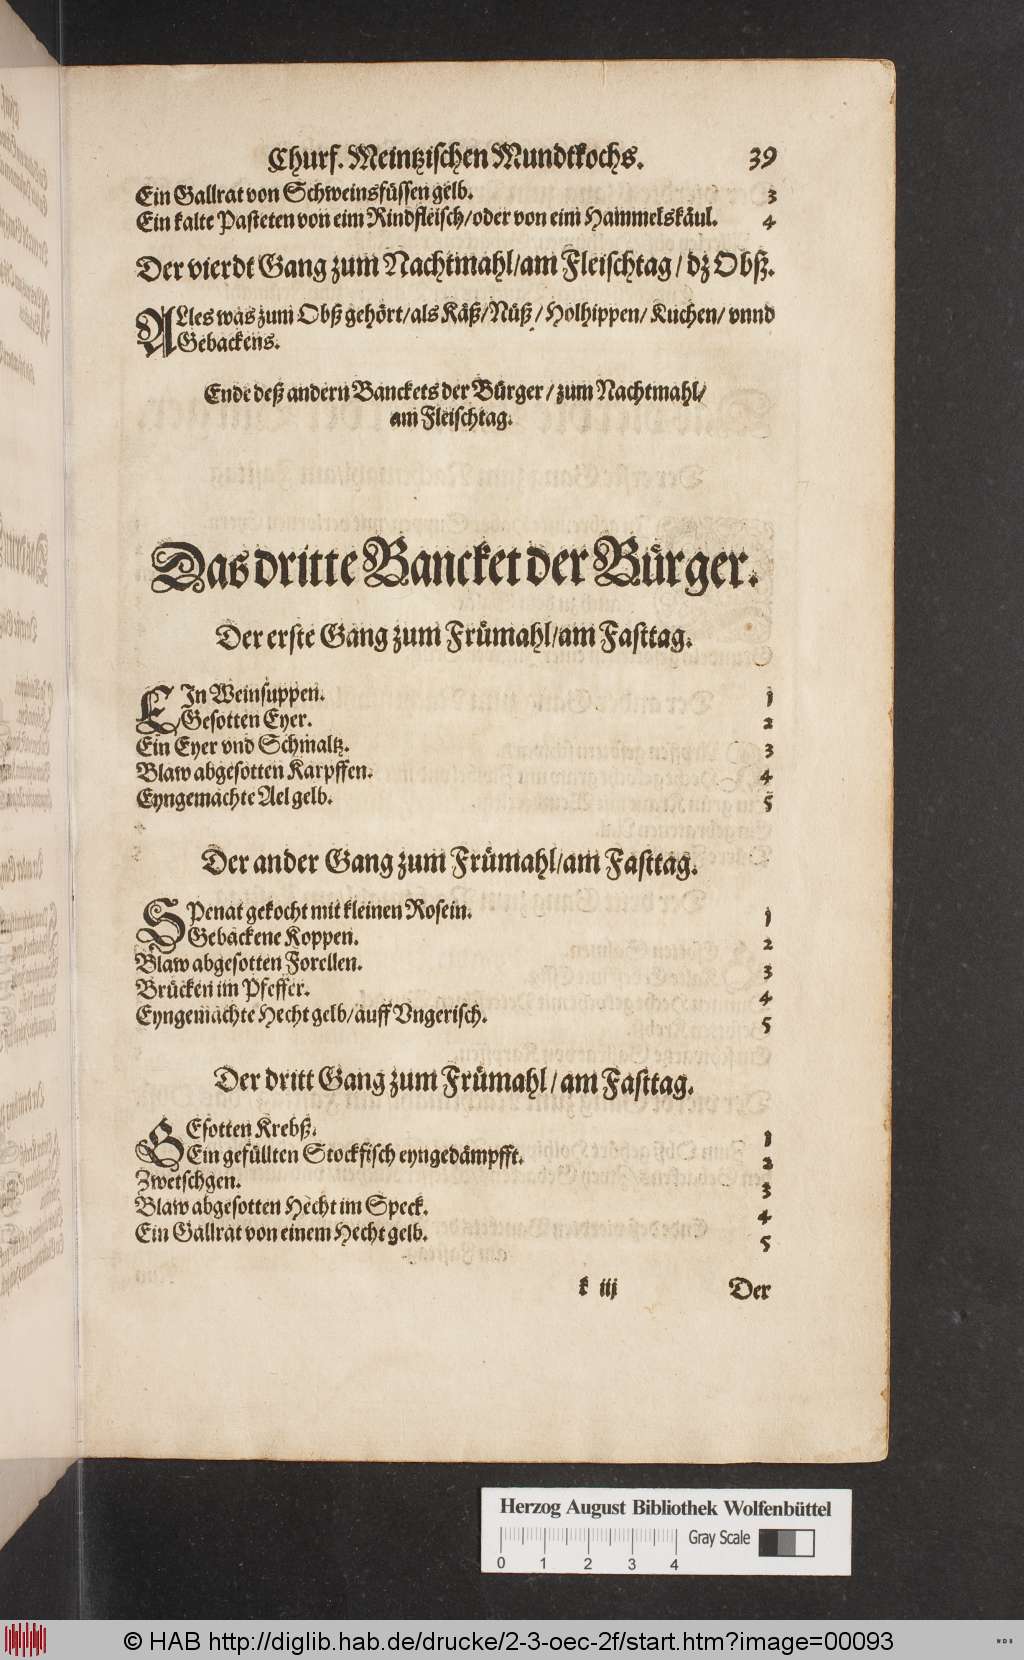 Churf. Meintzischen Mundtkochs. 39
Ein Gallrat von Schweinsfüssen gelb. 3
Ein kalte Pasteten von eim Rindfleisch/oder von eim Hammelskäul. 4
Der vierdt Gang zum Nachtmahl/am Fleischtag/dz Obß.
ALles was zum Obß gehört/als Käß/Nüß/Holhippen/Kuchen/vnnd
Gebackens.
Ende deß andern Banckets der Bürger/zum Nachtmahl/
am Fleischtag.
Das dritte Bancket der Bürger.
Der erste Gang zum Frümahl/am Fasttag.
EIn Weinsuppen. 1
Gesotten Eyer. 2
Ein Eyer vnd Schmaltz. 3
Blaw abgesotten Karpffen. 4
Eyngemachte Ael gelb. 5
Der ander Gang zum Frümahl/am Fasttag.
SPenat gekocht mit kleinen Rosein. 1
Gebackene Koppen. 2
Blaw abgesotten Forellen. 3
Brücken im Pfeffer. 4
Eyngemachte Hecht gelb/auff Vngerisch. 5
Der dritt Gang zum Frümahl/am Fasttag.
GEsotten Krebß. 1
Ein gefüllten Stockfisch eyngedämpfft. 2
Zwetschgen. 3
Blaw abgesotten Hecht im Speck. 4
Ein Gallrat von einem Hecht gelb. 5
k iij Der
Herzog August Bibliothek Wolfenbüttel
Gray Scale
0 1 2 3 4
© HAB http://diglib.hab.de/drucke/2-3-oec-2f/start.htm?image=00093